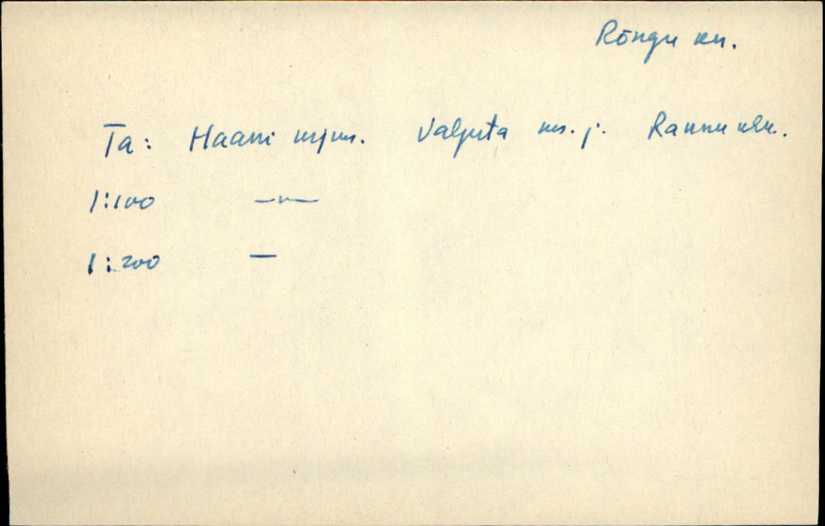 Rõngu kn.
Ta: Haani mjm. Valguta ms. j. Rannu khk.
1:100 —"—
1:200 —